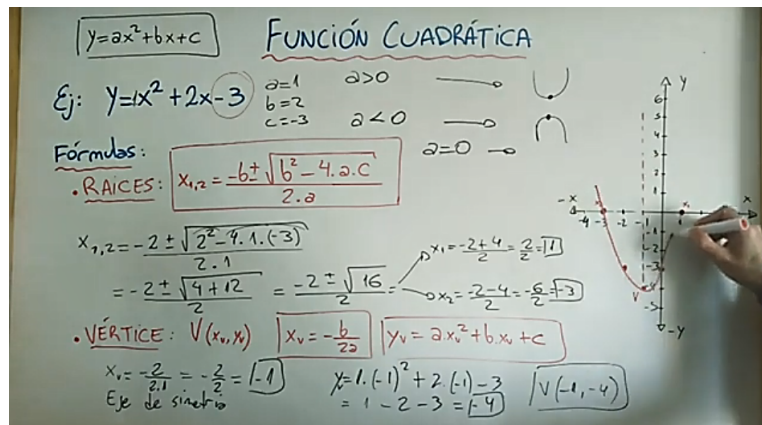 y=ax²+bx+c
FUNCIÓN CUADRÁTICA
Ej: y=1x²+2x-3
a=1
b=2
c=-3
a>0
a<0
a=0
Fórmulas:
• RAÍCES: x₁,₂ = (-b±√(b²-4.a.c))/(2.a)
x₁,₂ = (-2±√(2²-4.1.(-3)))/(2.1)
= (-2±√(4+12))/2 = (-2±√16)/2 =
x₁ = (-2+4)/2 = 2/2 = 1
x₂ = (-2-4)/2 = -6/2 = -3
• VÉRTICE: V(xᵥ,yᵥ) xᵥ = -b/2a yᵥ = a.xᵥ²+b.xᵥ+c
xᵥ = -2/2.1 = -2/2 = -1
Eje de simetría
y=1.(-1)²+2.(-1)-3
= 1-2-3 = -4
V(-1,-4)
y
6
5
4
3
2
1
-x
-4 -3 -2 -1 1
x
-1
-2
-3
-5
V
-y